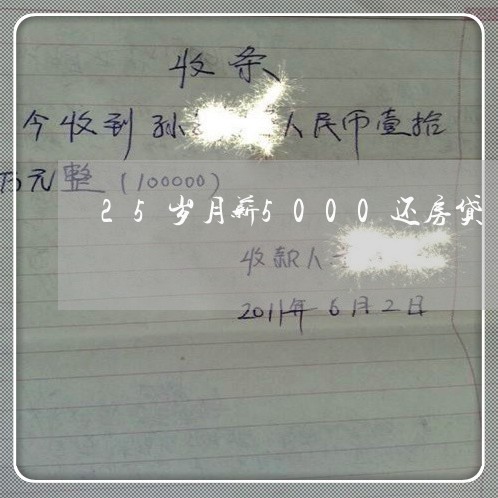 收条
今收到孙 人民币壹拾
万元整(100000)
25岁月薪5000还房贷
收款人
2011年6月2日